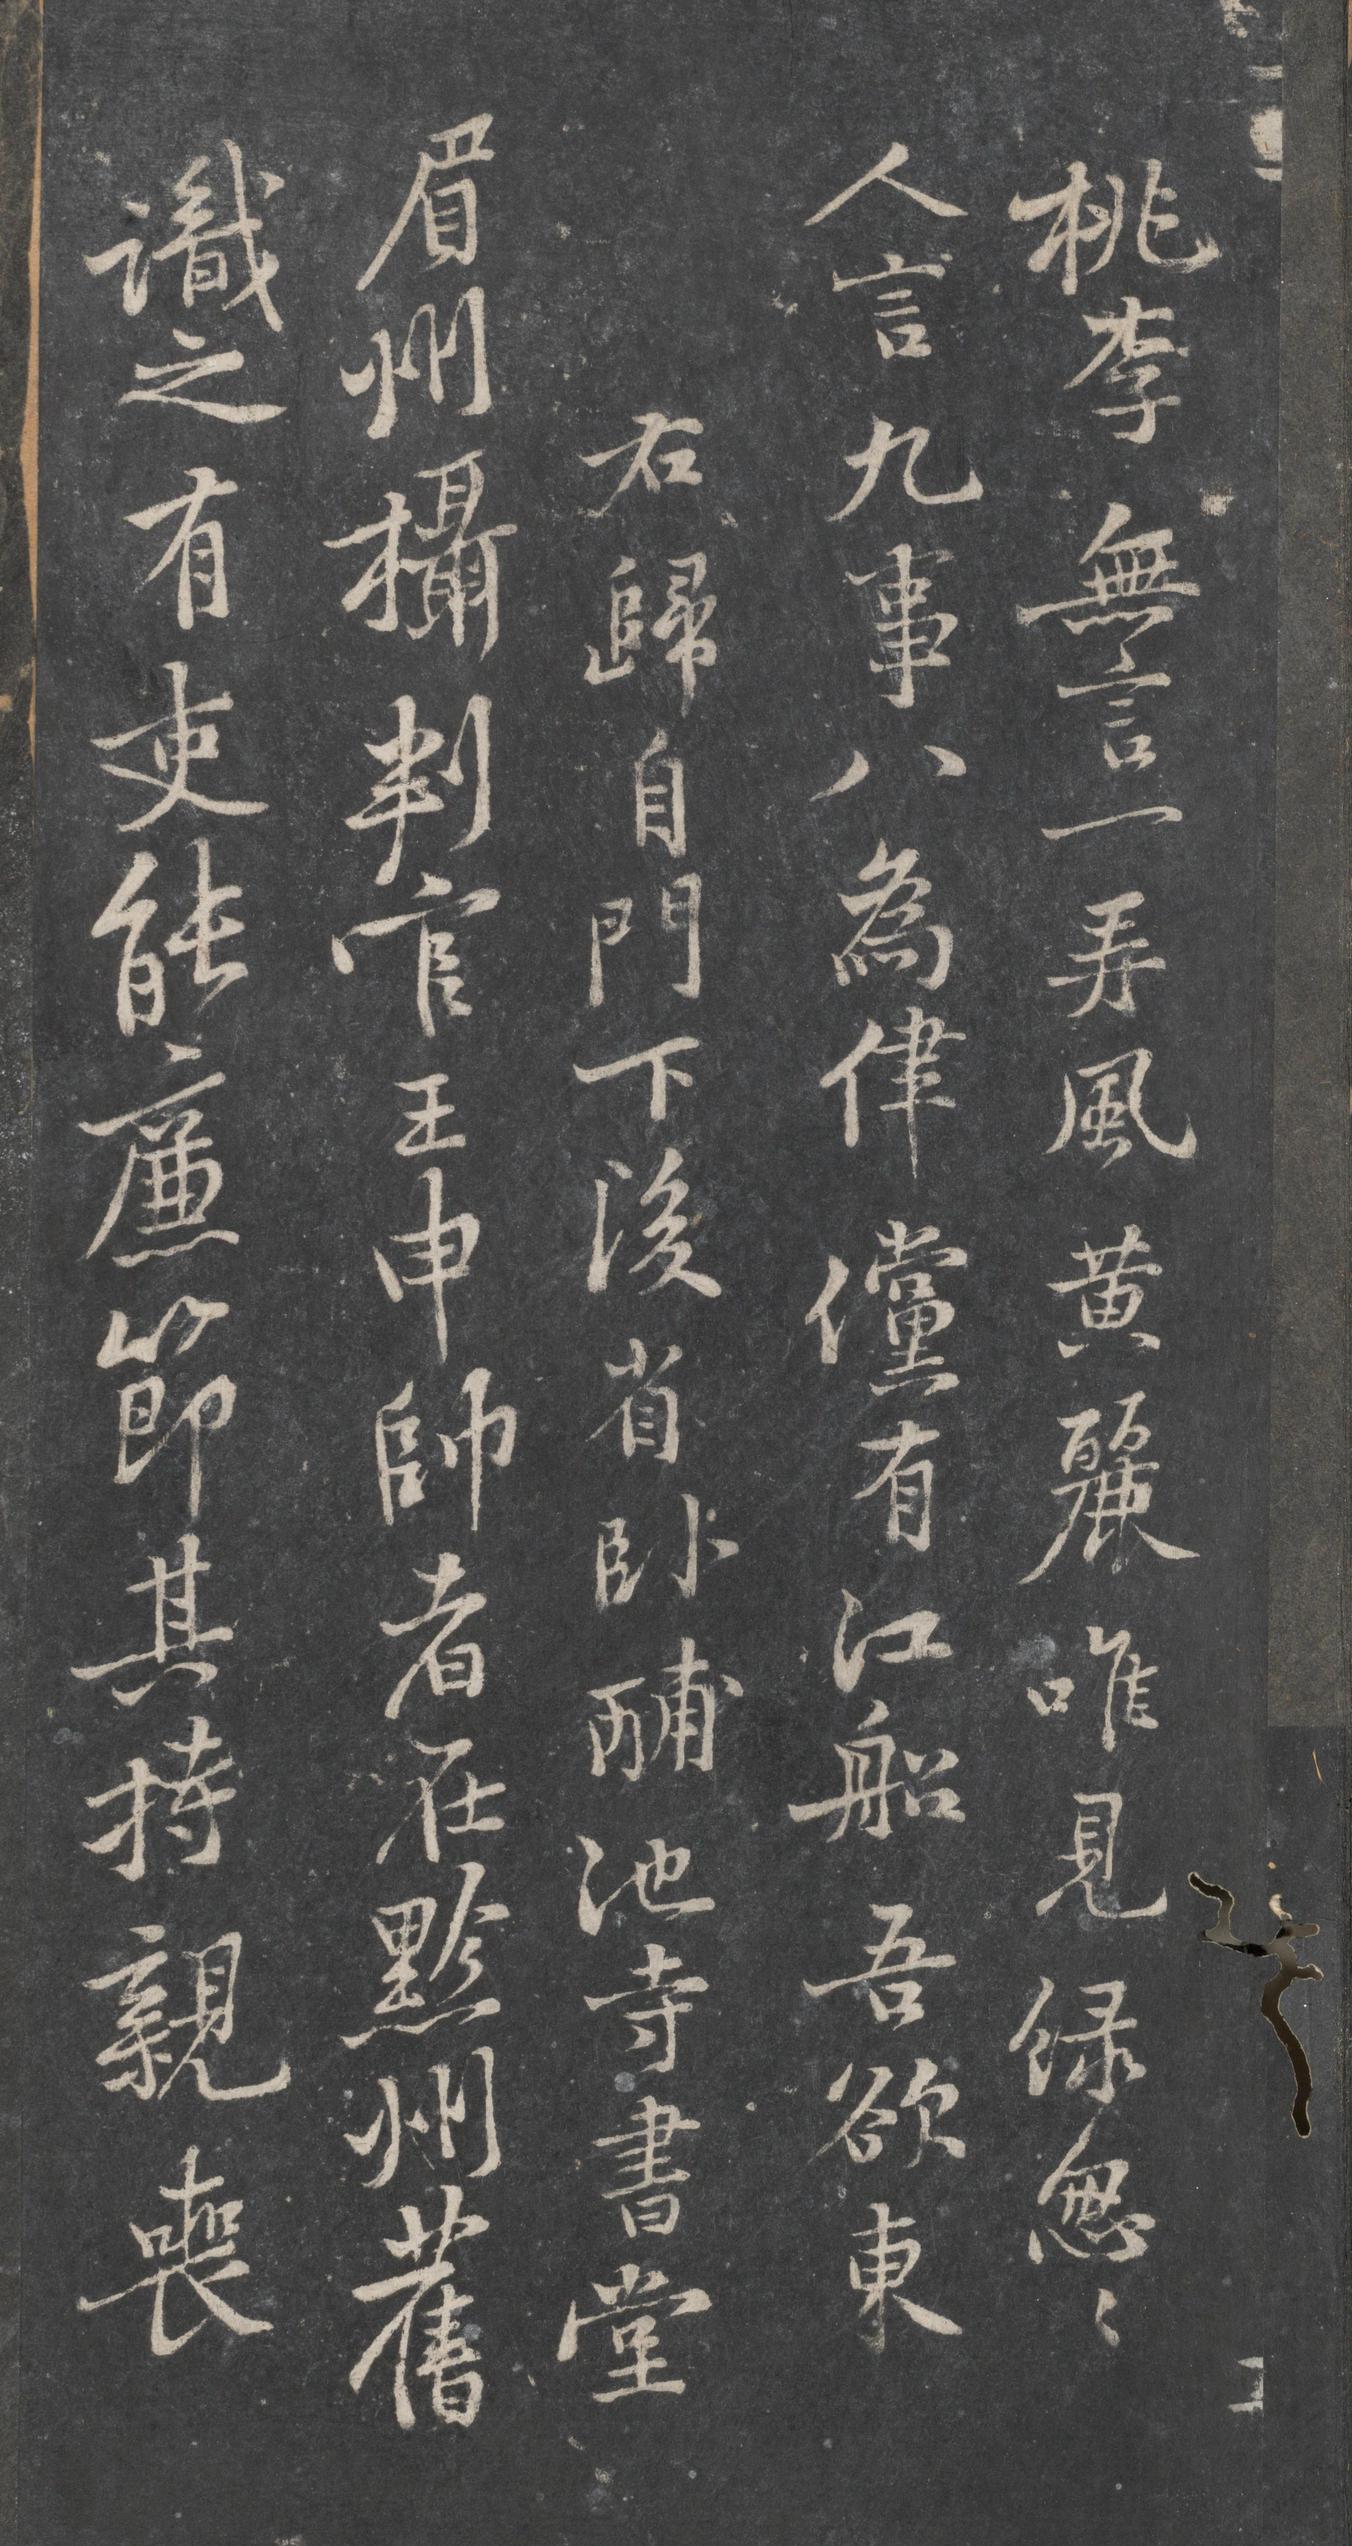 桃李無言一再風黄麗唯見緑怱〻
人言九事八為律儻有江船吾欲東
右歸自門下後省卧酺池寺書堂
眉州攝判官王申師者在黔州舊
識之有吏能廉節其持親喪